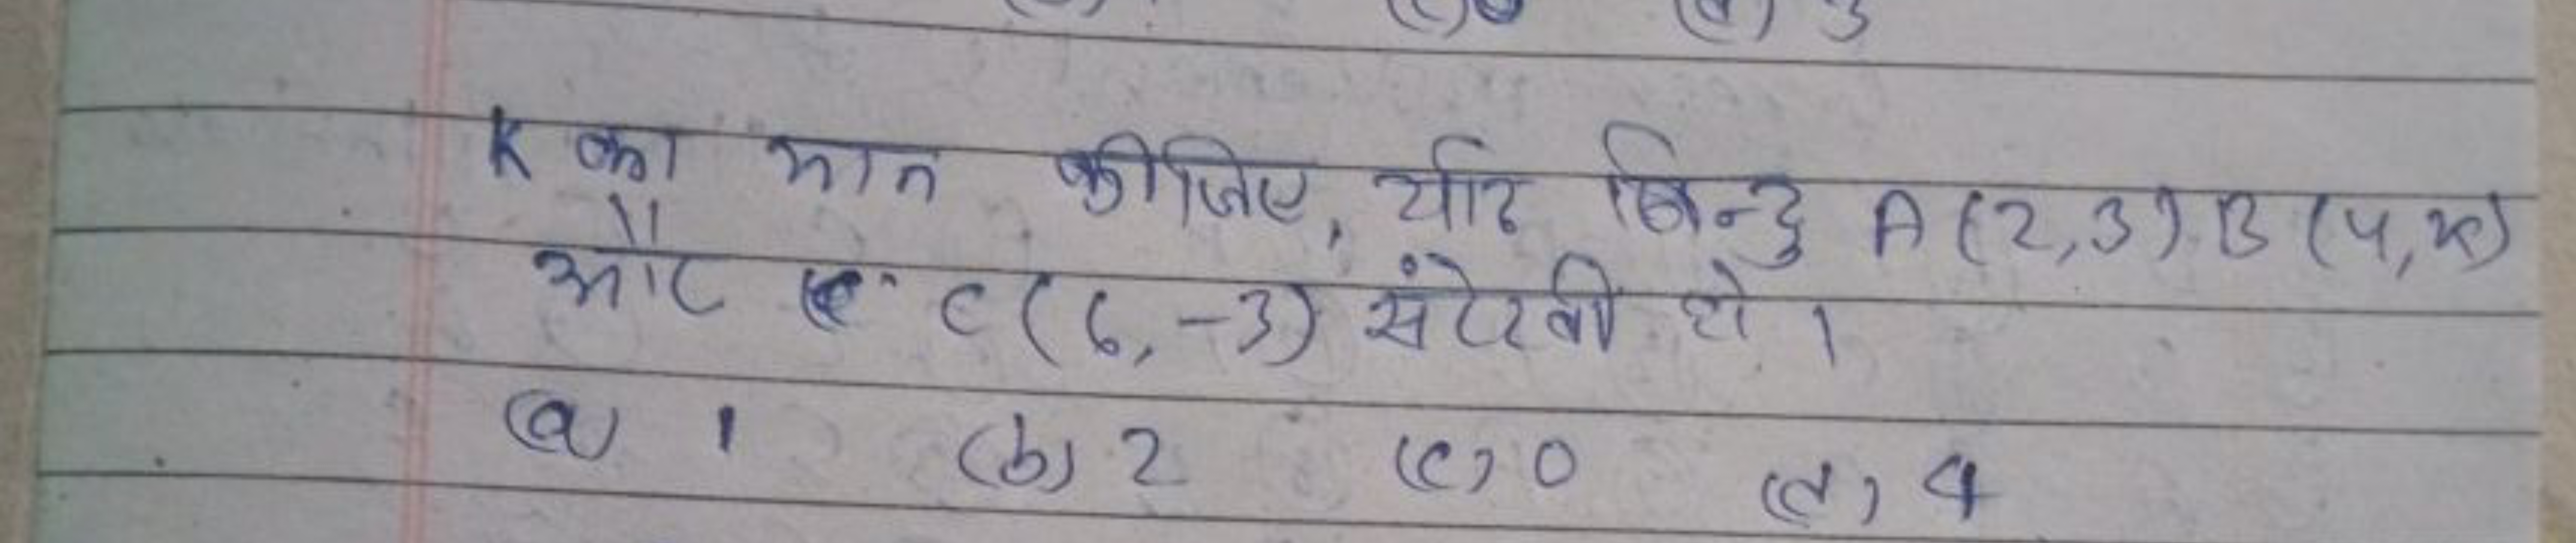 K का मान कीजिए, यदि बिन्दु A(2,3) B(4,k)
और C(6,-3) संरेखी हो ।
(a) 1 (b) 2 (c) 0 (d) 4